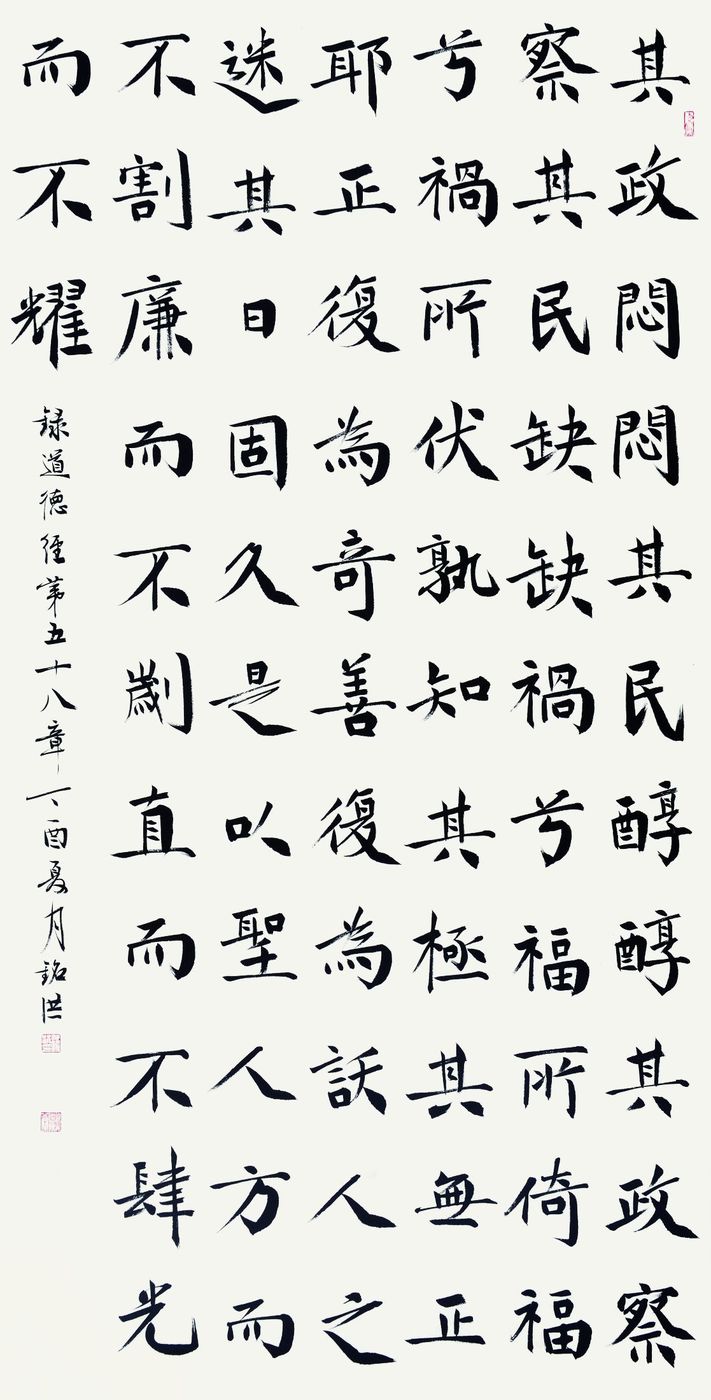 其政悶悶其民醇醇其政察
察其民缺缺禍兮福所倚福
兮禍所伏孰知其極其無正
耶正復為奇善復為訞人之
迷其日固久是以聖人方而
不割廉而不劌直而不肆光
而不耀
録道德經第五十八章丁酉夏月銘洪